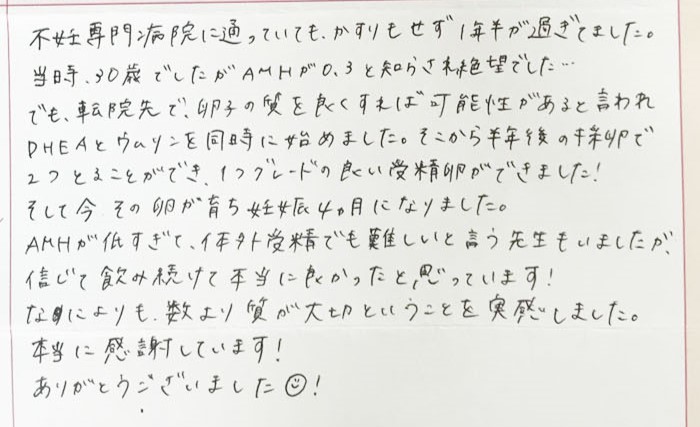 不妊専門病院に通っていても、かすりもせず1年半が過ぎてました。
当時、30歳でしたがAMHが0.3と知らされ絶望でした…
でも、転院先で、卵子の質を良くすれば可能性があると言われ
DHEAとウムリンを同時に始めました。そこから半年後の採卵で
2つとることができ、1つグレードの良い受精卵ができました!
そして今その卵が育ち妊娠4ヵ月になりました。
AMHが低すぎて、体外受精でも難しいと言う先生もいましたが、
信じて飲み続けて本当に良かったと思っています!
なによりも、数より質が大切ということを実感しました。
本当に感謝しています!
ありがとうございました☺!